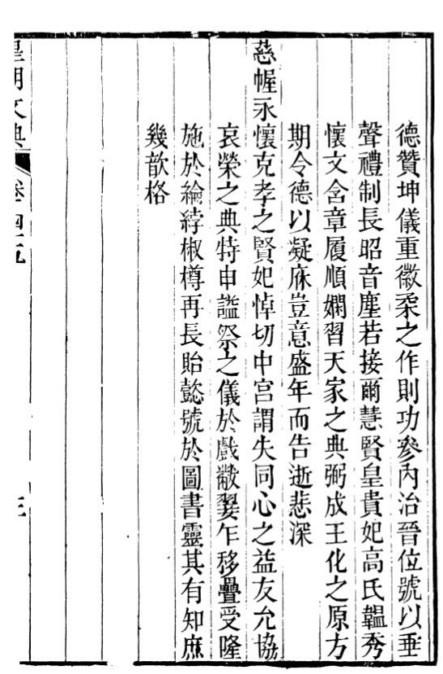 德贊坤儀重徽柔之作則功參內治晉位號以垂
聲禮制長昭音塵若接爾慧賢皇貴妃高氏韞秀
懷文含章履順嫻習天家之典弼成王化之原方
期令德以凝庥豈意盛年而告逝悲深
慈幄永懷克孝之賢妃悼切中宮謂失同心之益友允協
哀榮之典特申謚祭之儀於戲敝翣乍移疊受隆
施於綸綍椒樽再長貽懿號於圖書靈其有知庶
幾歆格
皇朝文典 卷四五
三